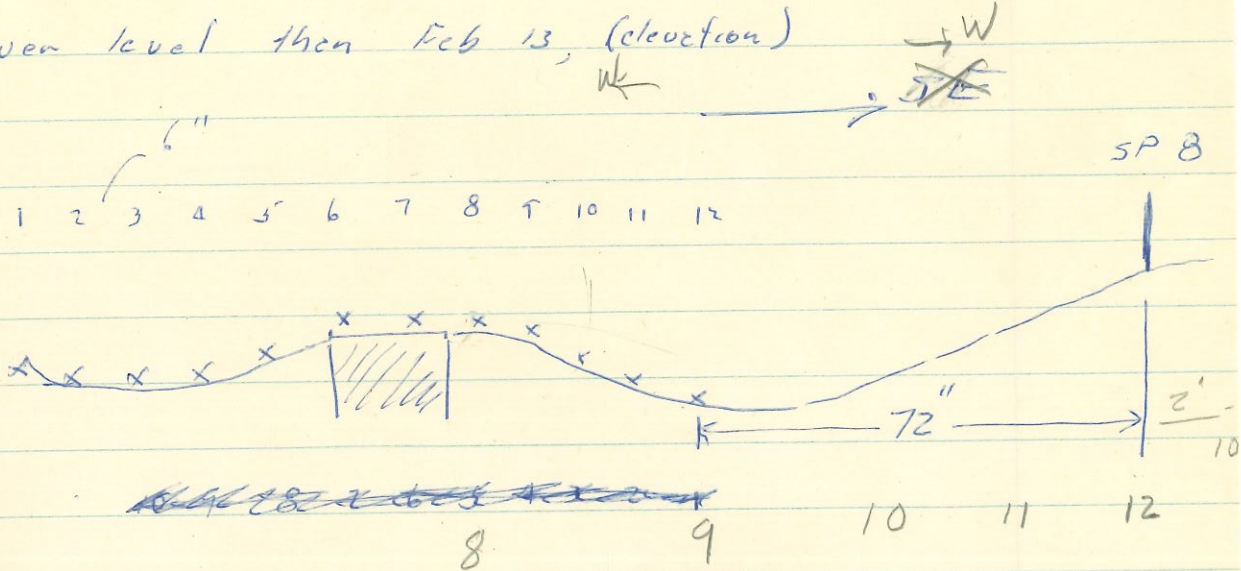 ver level then Feb 13, (elevation)
W
W
SE
6"
SP 8
1 2 3 4 5 6 7 8 9 10 11 12
72"
2'
10
8 9 10 11 12